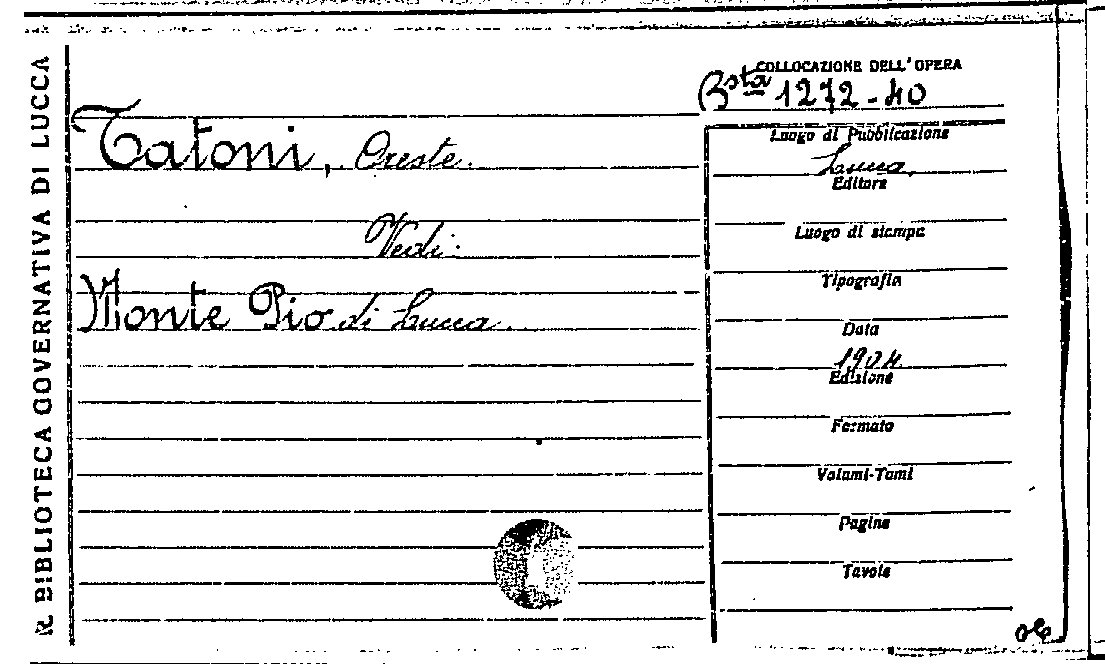 R. BIBLIOTECA GOVERNATIVA DI LUCCA
COLLOCAZIONE DELL'OPERA
Bsta 1272-40
Tatoni, Oreste.
Vedi:
Monte Pio di Lucca.
Luogo di Pubblicazione
Lucca.
Editore
Luogo di stampa
Tipografia
Data
1904
Edizione
Formato
Volumi-Tomi
Pagine
Tavole